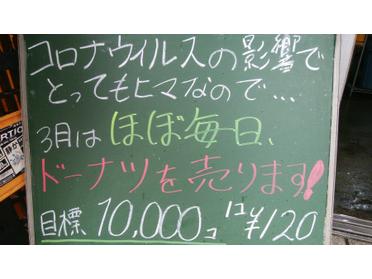 コロナウイルスの影響で
とってもヒマなので…
3月は ほぼ毎日、
ドーナツを売ります!
目標 10,000コ 1コ¥120